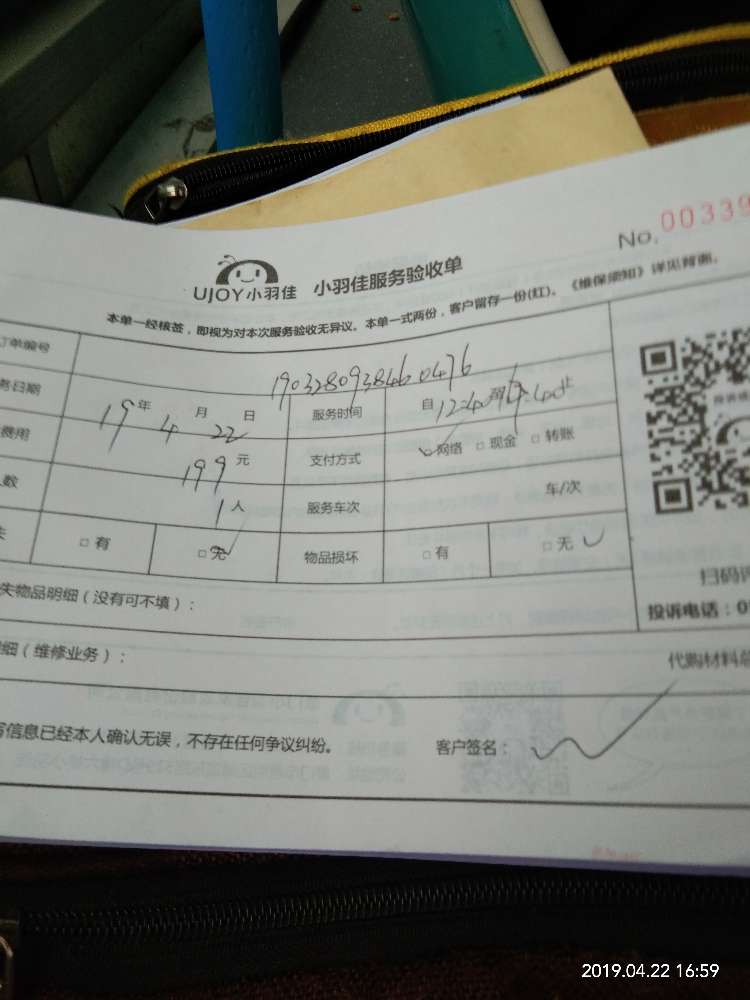 No. 00339
UJOY小羽佳 小羽佳服务验收单
本单一经核签，即视为对本次服务验收无异议。本单一式两份，客户留存一份(红)。《维保须知》详见背面。
订单编号 190328093846 0476
务日期 19年 4月 22日 服务时间 自12:40
费用 199元 支付方式 □网络 □现金 □转账
人数 1人 服务车次 车/次
失 □有 □无 物品损坏 □有 □无
扫码评
失物品明细（没有可不填）：
投诉电话：0
细（维修业务）：
代购材料总
写信息已经本人确认无误，不存在任何争议纠纷。 客户签名：
2019.04.22 16:59